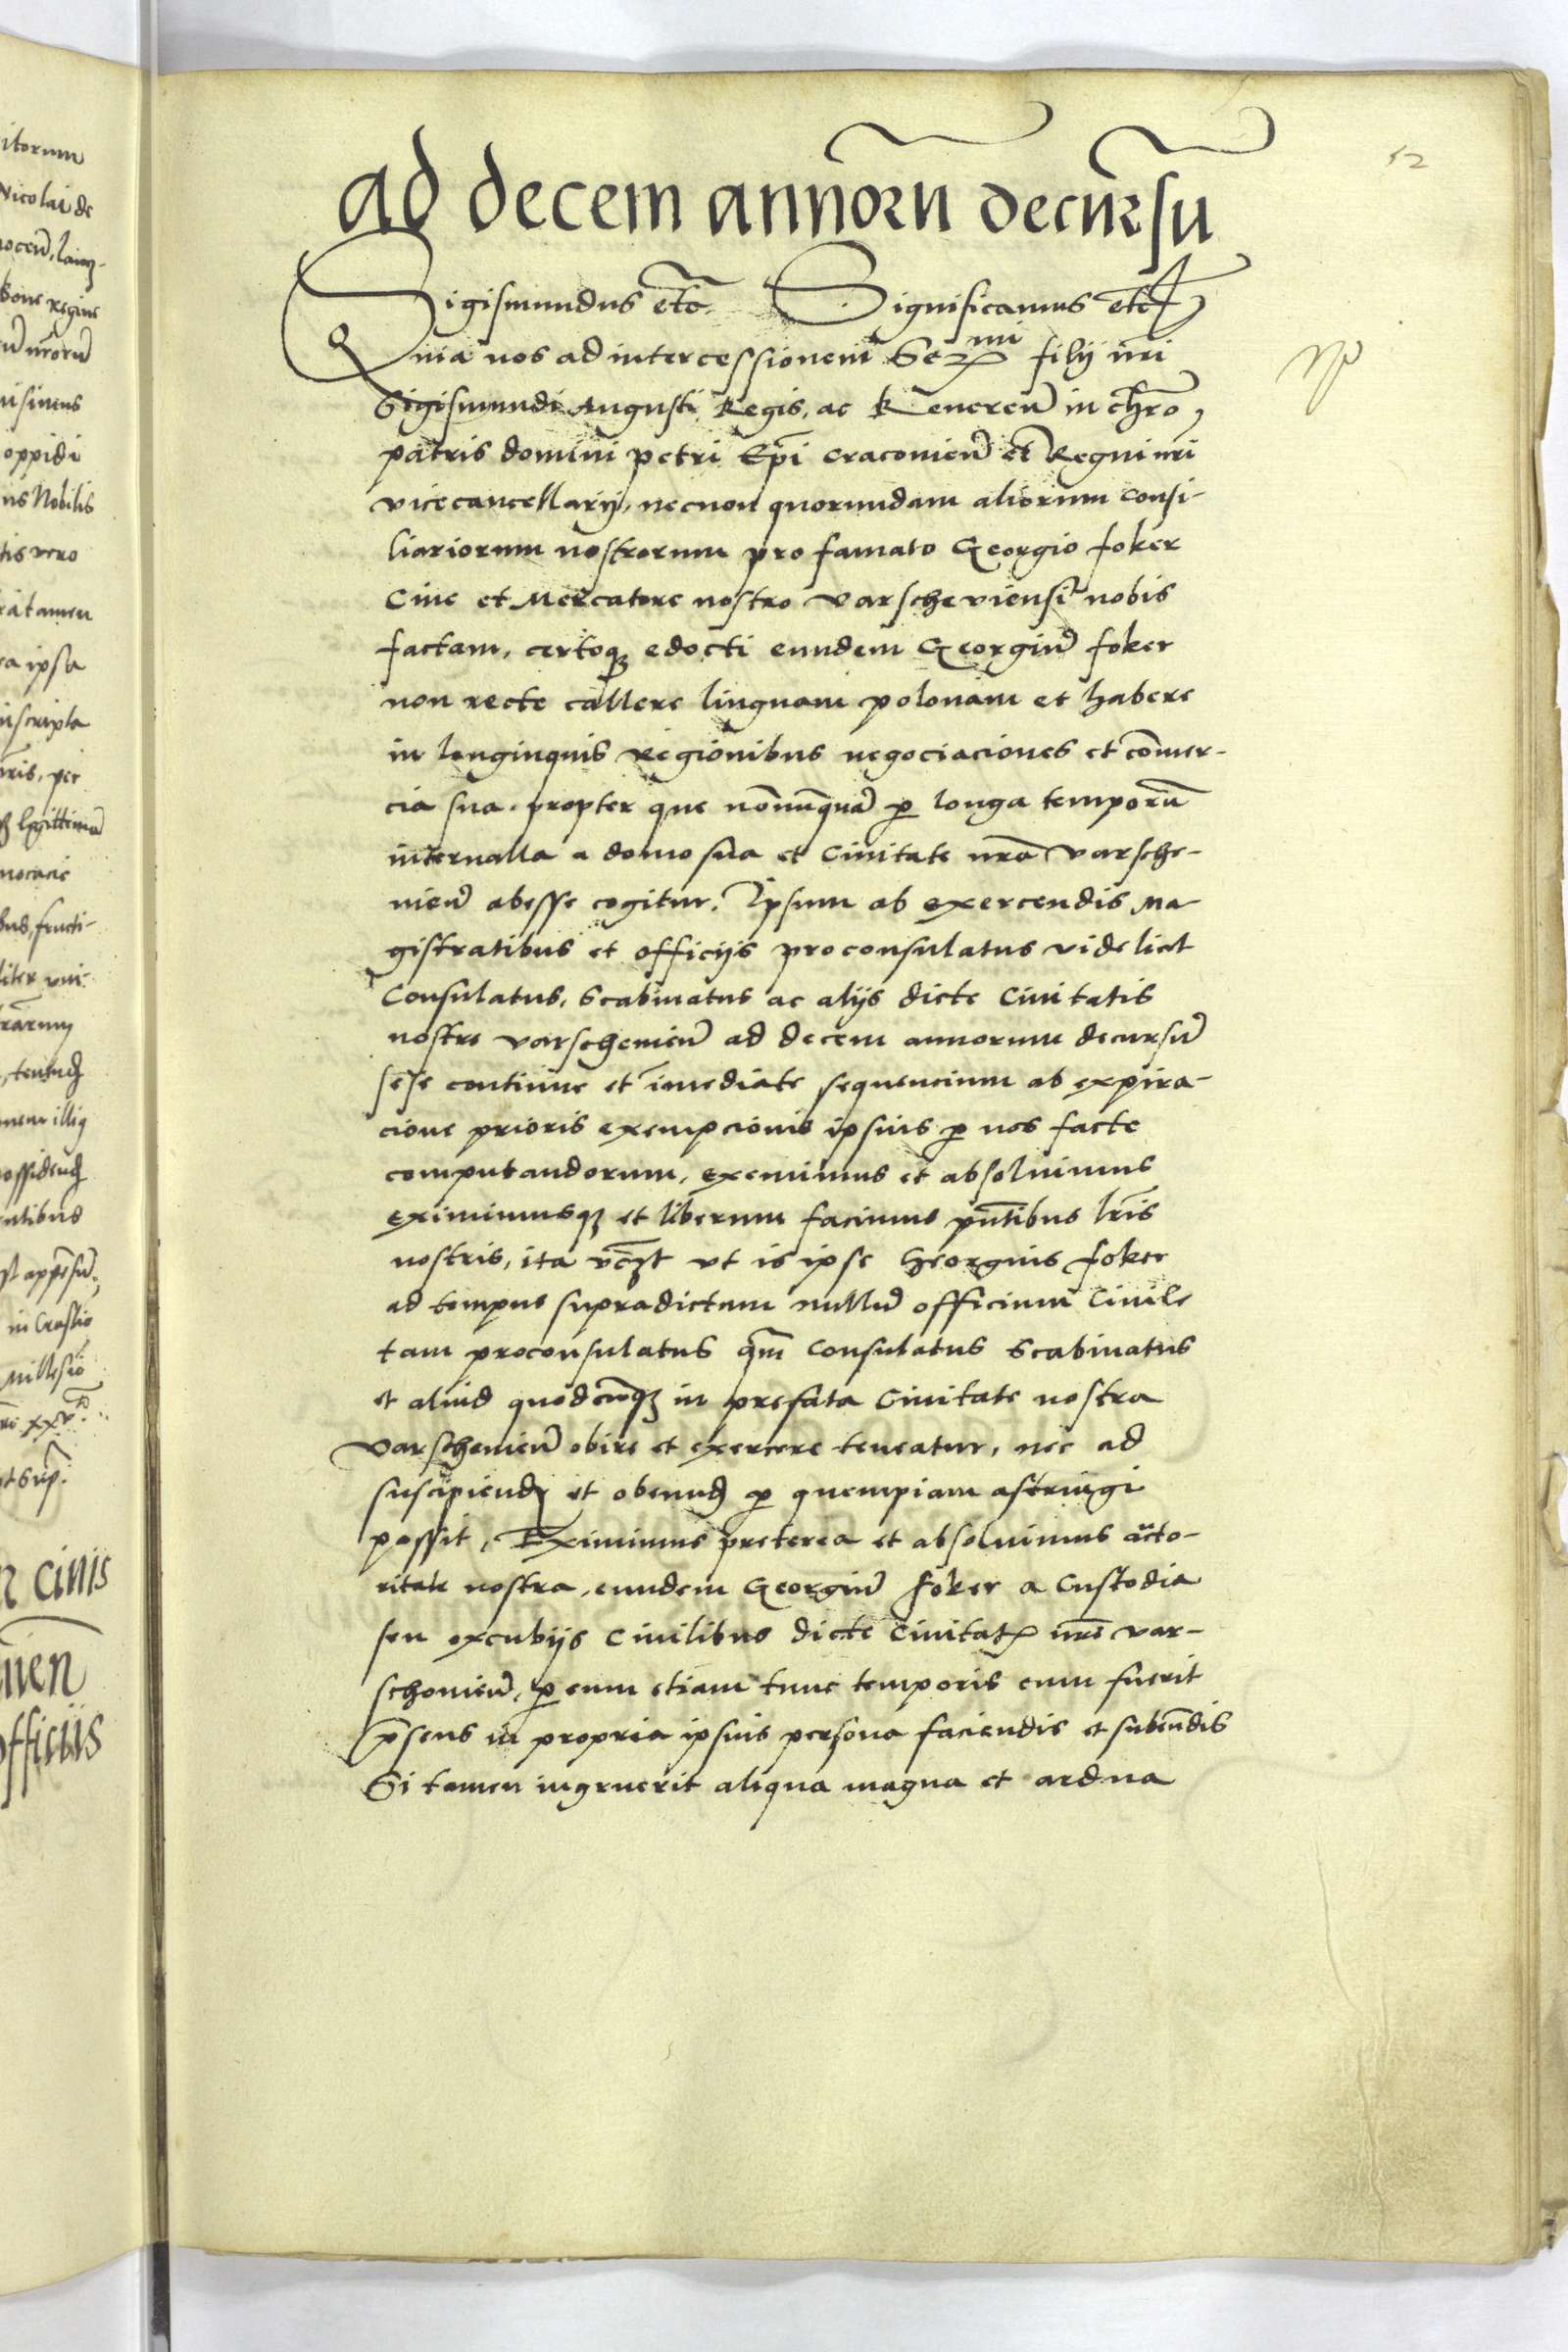 52
ad decem annorū decursū
Sigismundus etc. Significamus etc
Quia nos ad intercessionem Sermi filij nri
Sigismundi Augusti Regis, ac Reueren in chro
patris domini petri Epi cracouien et Regni nri
vicecancellarij, necnon quorundam aliorum consi-
liariorum nostrorum pro famato Georgio foker
Ciue et Mercatore nostro varscheuiensi nobis
factam, certoq edocti eundem Georgiū foker
non recte callere linguam polonam et habere
in longinquis regionibus negociaciones et comer-
cia sua. propter que nonnunqua p longa temporū
interualla a domo sua et Ciuitate nra varsche-
uien abesse cogitur. Ipsum ab exercendis Ma-
gistratibus et officijs proconsulatus videlict
Consulatus, Scabinatus ac alijs dicte Ciuitatis
nostre varscheuien ad decem annorum decursū
sese continue et imediate sequencium ab expira-
cione prioris exempcionis ipsius p nos facte
computandorum, exemimus et absoluimus
eximimusq et liberum facimus pntibus lris
nostris, ita vczt vt is ipse Georgius foker
ad tempus supradictam nullū officium Ciuile
tam proconsulatus qm Consulatus Scabinatus
et aliud quodcunq in prefata Ciuitate nostra
varscheuien obire et exercere teneatur, nec ad
suscipiend et obeund p quempiam astringi
possit, Eximimus preterea et absoluimus aucto-
ritate nostra, eundem Georgiū foker a Custodia
seu excubijs Ciuilibus dicte Ciuitatis nre var-
schouien, p eum etiam tunc temporis cum fuerit
psens in propria ipsius persona faciendis et subeundis
Si tamen ingruerit aliqua magna et ardua
itorum
Nicolai de
regine
nrorū
oppidi
us Nobilis
tis vero
ratamen
ra ipsa
inscripta
ris, per
legittima
fructi-
nem illiq
possidend
in Crastio
millesio
xxv
cinis
uien
officiis